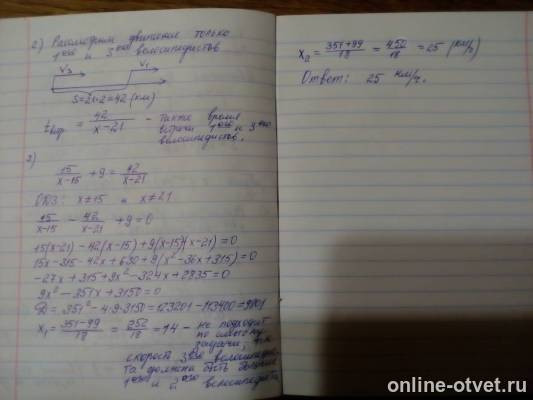 2) Рассмотрим движение только
1ого и 3его велосипедистов
V3 V1
S=21·2=42 (км)
tвстр = 42/(x-21) - такое время
встречи 1ого и 3его
велосипедистов.
3)
15/(x-15) +9 = 42/(x-21)
ОДЗ: x≠15 и x≠21
15/(x-15) - 42/(x-21) +9=0
15(x-21) -42(x-15)+9(x-15)(x-21)=0
15x-315-42x+630+9(x²-36x+315)=0
-27x+315+9x²-324x+2835=0
9x²-351x+3150=0
D=351²-4·9·3150=123201-113400=9801
x1=(351-99)/18 = 252/18=14 - не подходит
по смыслу
задачи, т.к
скорость 3его велосипедис-
та должна быть больше
1ого и 2ого велосипедиста
x2=(351+99)/18=450/18=25 (км/ч)
Ответ: 25 км/ч.
online-otvet.ru